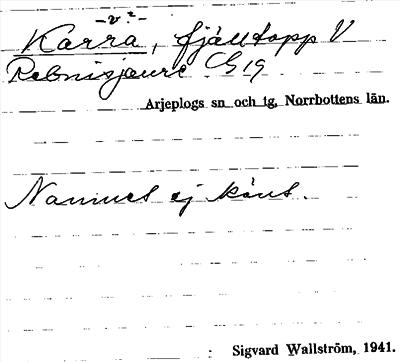 -v?-
Karra, fjälltopp V
Rebnisjaure G 19
Arjeplogs sn och tg, Norrbottens län.
Namnet ej känt.
Sigvard Wallström, 1941.